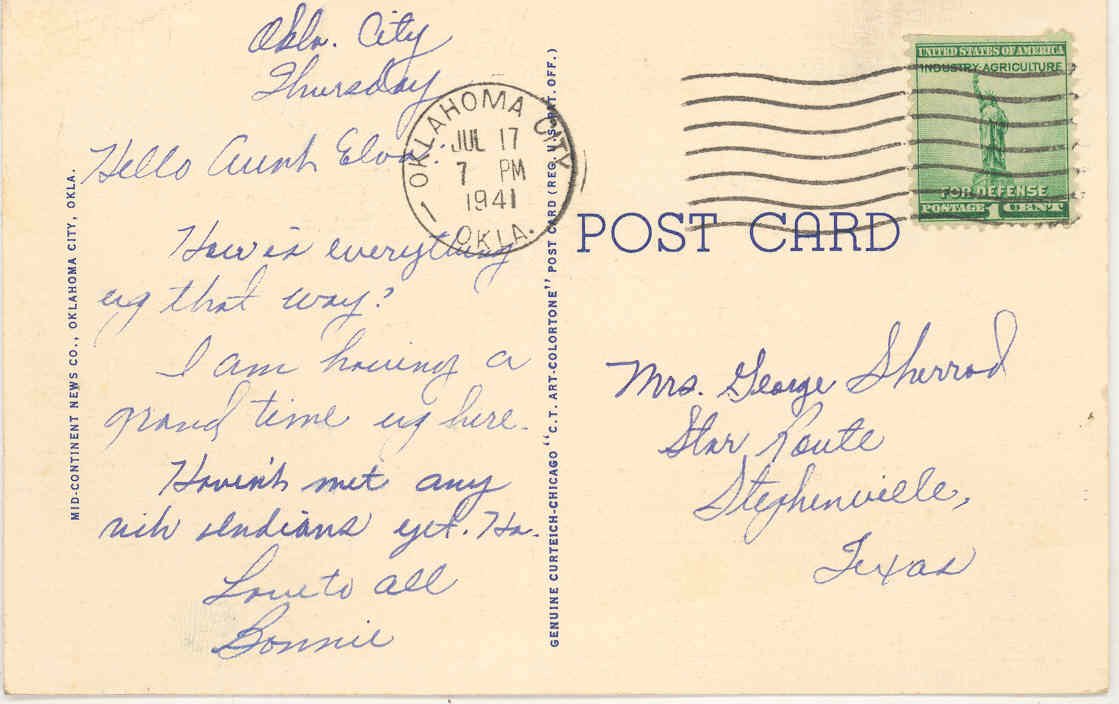 Okla. City
Thursday
Hello Aunt Elva:
How is everything
up that way?
I am having a
grand time up here.
Haven't met any
rich Indians yet. Ha.
Love to all
Bonnie
MID-CONTINENT NEWS CO., OKLAHOMA CITY, OKLA.
GENUINE CURTEICH-CHICAGO "C.T. ART-COLORTONE" POST CARD (REG. U.S. PAT. OFF.)
OKLAHOMA CITY
JUL 17
7 PM
1941
OKLA.
1
UNITED STATES OF AMERICA
INDUSTRY-AGRICULTURE
FOR DEFENSE
POSTAGE 1 CENT
POST CARD
Mrs. George Sherrod
Star Route
Stephenville,
Texas